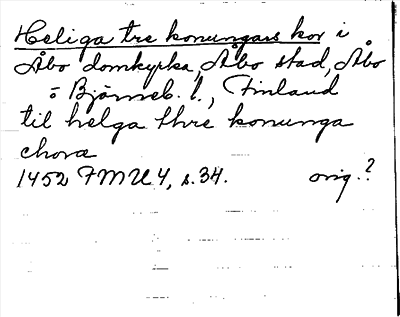 Heliga tre konungars kor i
Åbo domkyrka, Åbo stad, Åbo
o Björneb. l., Finland
til helga thre konunga
chora
1452 FMU 4, s. 34. orig.?